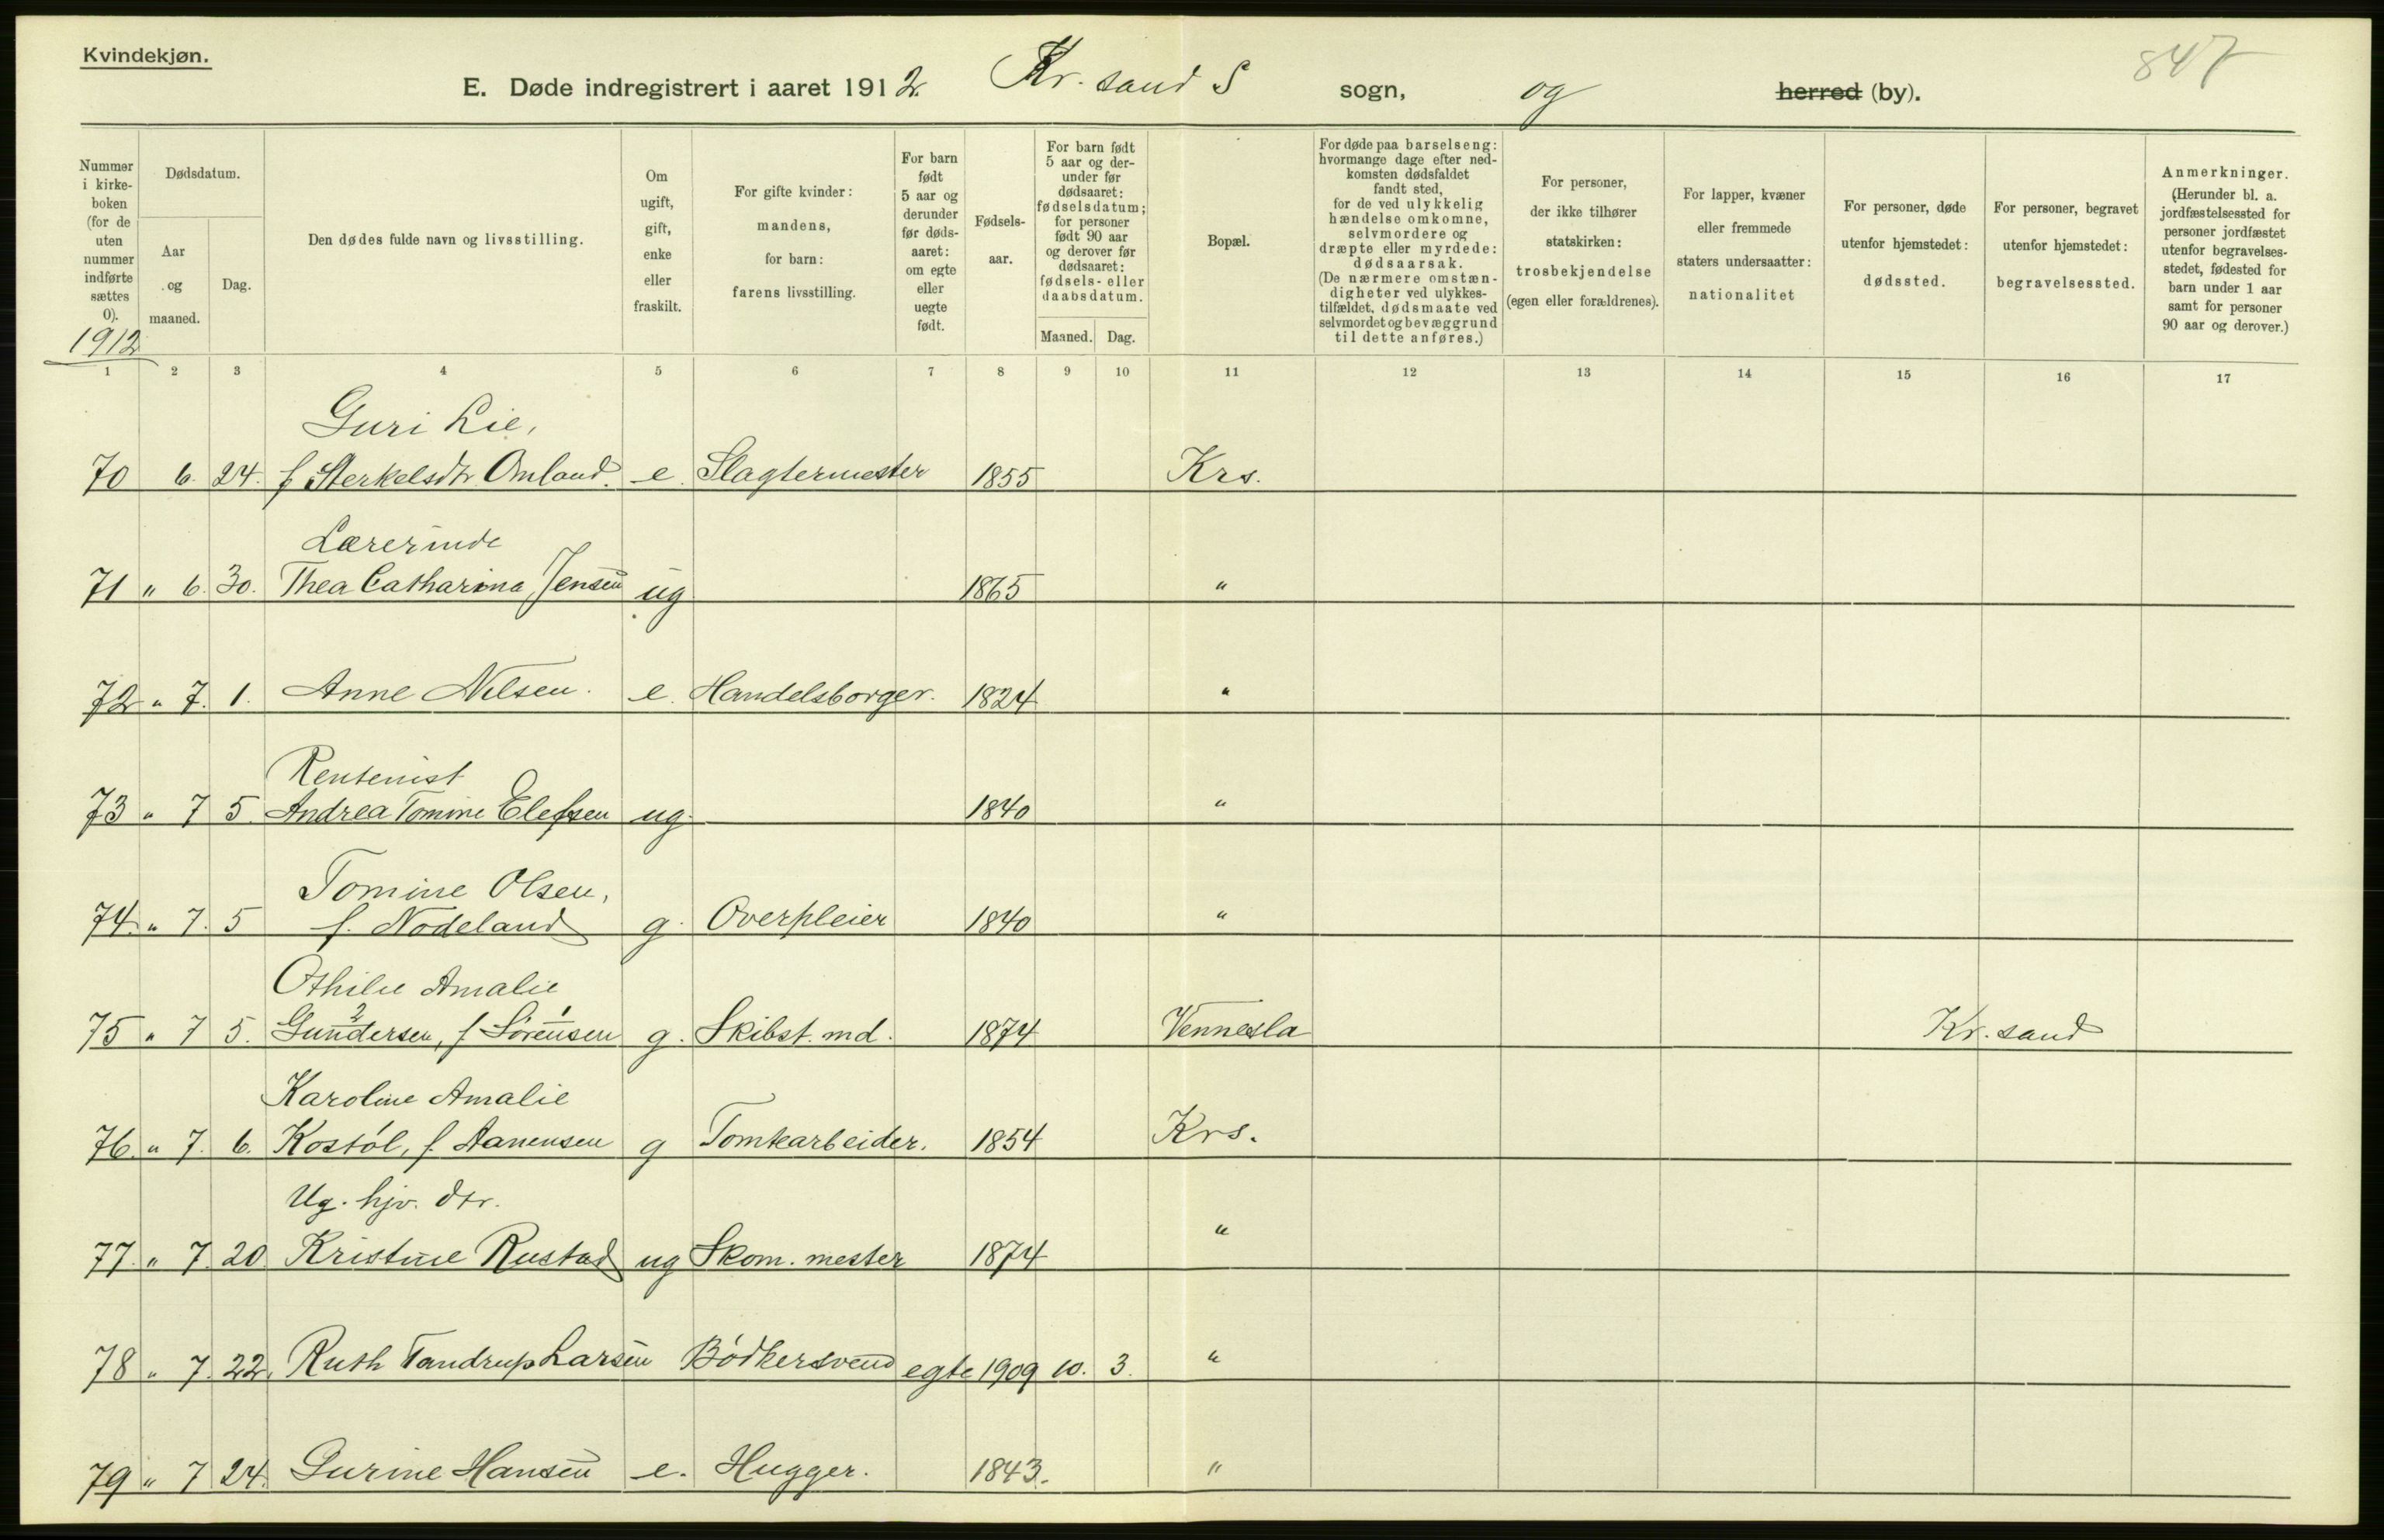 Kvindekjøn.
847
E. Døde indregistrert i aaret 1912 Kr. sand S sogn, og herred (by).
Nummer i kirkeboken (for de uten nummer indførte sættes 0).
1912
Dødsdatum.
Aar og maaned.
Dag.
Den dødes fulde navn og livsstilling.
Om ugift, gift, enke eller fraskilt.
For gifte kvinder: mandens, for barn: farens livsstilling.
For barn født 5 aar og derunder før dødsaaret: om egte eller uegte født.
Fødselsaar.
For barn født 5 aar og derunder før dødsaaret: fødselsdatum; for personer født 90 aar og derover før dødsaaret: fødsels- eller daabsdatum.
Maaned. Dag.
Bopæl.
For døde paa barselseng: hvormange dage efter nedkomsten dødsfaldet fandt sted, for de ved ulykkelig hændelse omkomne, selvmordere og dræpte eller myrdede: dødsaarsak. (De nærmere omstændigheter ved ulykkestilfældet, dødsmaate ved selvmordet og bevæggrund til dette anføres.)
For personer, der ikke tilhører statskirken: trosbekjendelse (egen eller forældrenes).
For lapper, kvæner eller fremmede staters undersaatter: nationalitet
For personer, døde utenfor hjemstedet: dødssted.
For personer, begravet utenfor hjemstedet: begravelsessted.
Anmerkninger. (Herunder bl. a. jordfæstelsessted for personer jordfæstet utenfor begravelsesstedet, fødested for barn under 1 aar samt for personer 90 aar og derover.)
1 2 3 4 5 6 7 8 9 10 11 12 13 14 15 16 17
Guri Lie,
70 6. 24. f Sterkelsdtr. Omland. e. Slagtermester 1855 Krs.
Lærerinde
71 " 6. 30. Thea Catharina Jensen ug 1865 "
72 " 7. 1. Anne Nilsen. e. Handelsborger. 1824 "
Rentenist
73 " 7 5. Andrea Tomine Elefsen ug. 1840 "
Tomine Olsen,
74. " 7. 5 f. Nodeland g. Overpleier 1840 "
Othilie Amalie
2 1
75 " 7 5. Gundersen, f Sørensen g. Skibst. md. 1874 Vennesla Kr. sand
Karoline Amalie
76. " 7. 6. Kostøl, f. Aanensen g Tomtearbeider. 1854 Krs.
Ug. hjv. dtr.
77. " 7. 20 Kristine Rustad ug Skom. mester 1874 "
78 " 7. 22. Ruth Tandrup Larsen Bødkersvend egte 1909 10. 3. "
79 " 7 24. Gurine Hansen e. Hugger. 1843. "